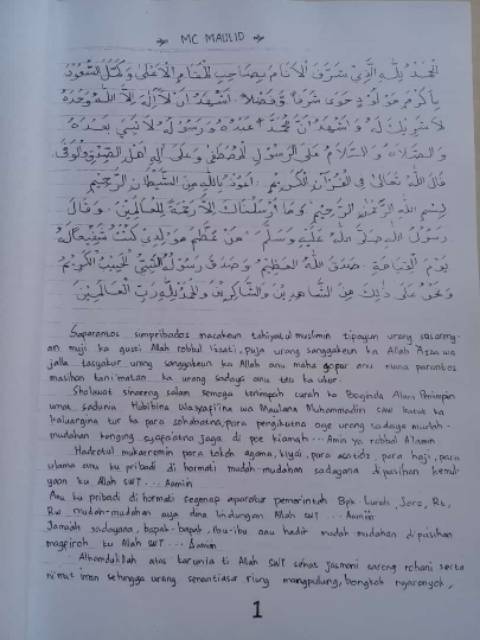 MC MAULID
الحمد لله الذي شرف الأنام بصاحب المقام الأعلى وكمل السعود
بأكرم مولود حوى شرفا وفضلا. أشهد أن لا إله إلا الله وحده
لا شريك له وأشهد أن محمدا عبده ورسوله لا نبي بعده
والصلاة والسلام على الرسول المصطفى وعلى آله أهل الصدق والوفى
قال الله تعالى في القرآن الكريم. أعوذ بالله من الشيطان الرجيم
بسم الله الرحمن الرحيم وما أرسلناك إلا رحمة للعالمين. وقال
رسول الله صلى الله عليه وسلم من عظم مولدي كنت شفيعا له
يوم القيامة. صدق الله العظيم وصدق رسوله النبي الحبيب الكريم
ونحن على ذلك من الشاهدين والشاكرين والحمد لله رب العالمين
Saparantos sumpribados macakeun tahiyatul muslimin tipayun urang sasareng-
an muji ka gusti Allah robbul izzati, puja urang sanggakeun ka Allah Azza wa
jalla tasyakur urang sanggakeun ka Allah anu maha gopur anu nuna parantos
masihan tani'matan ka urang sadaya anu teu ka ukur.
Sholawat sinareng salam semoga tetimpah curah ka Baginda Alam Pimpinan
umat sadunia Habibina Wasyafi'ina wa Maulana Muhammadin SAW katut ka
kaluargina tur ka para sohabatna, para pengikutna oge urang sadaya mudah-
mudahan kenging syafa'atna jaga di poe kiamah... Amin ya robbal Alamin
Hadrotul mukarromin para tokoh agama, kiyai, para asatidz, para haji, para
ulama anu ku pribadi di hormati mudah-mudahan sadayana dipasihan kamul-
yaan ku Allah SWT... Aamiin
Anu ku pribadi di hormati segenap aparatur pemerintah Bpk. Lurah, Jaro, Rt,
Rw mudah-mudahan aya dina lindungan Allah SWT... Aamiin
Jamaah sadayana, bapak-bapak, ibu-ibu anu hadir mudah mudahan dipasihan
magfiroh ku Allah SWT... Aamiin
Alhamdulillah atas karunia ti Allah SWT sehat jasmani sareng rohani serta
ni'mat iman sehingga urang senantiasa riung mangpulung, bongkok ngaronyok,
1